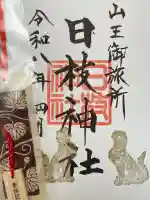 山王御旅所
日枝神社
令和八年四月